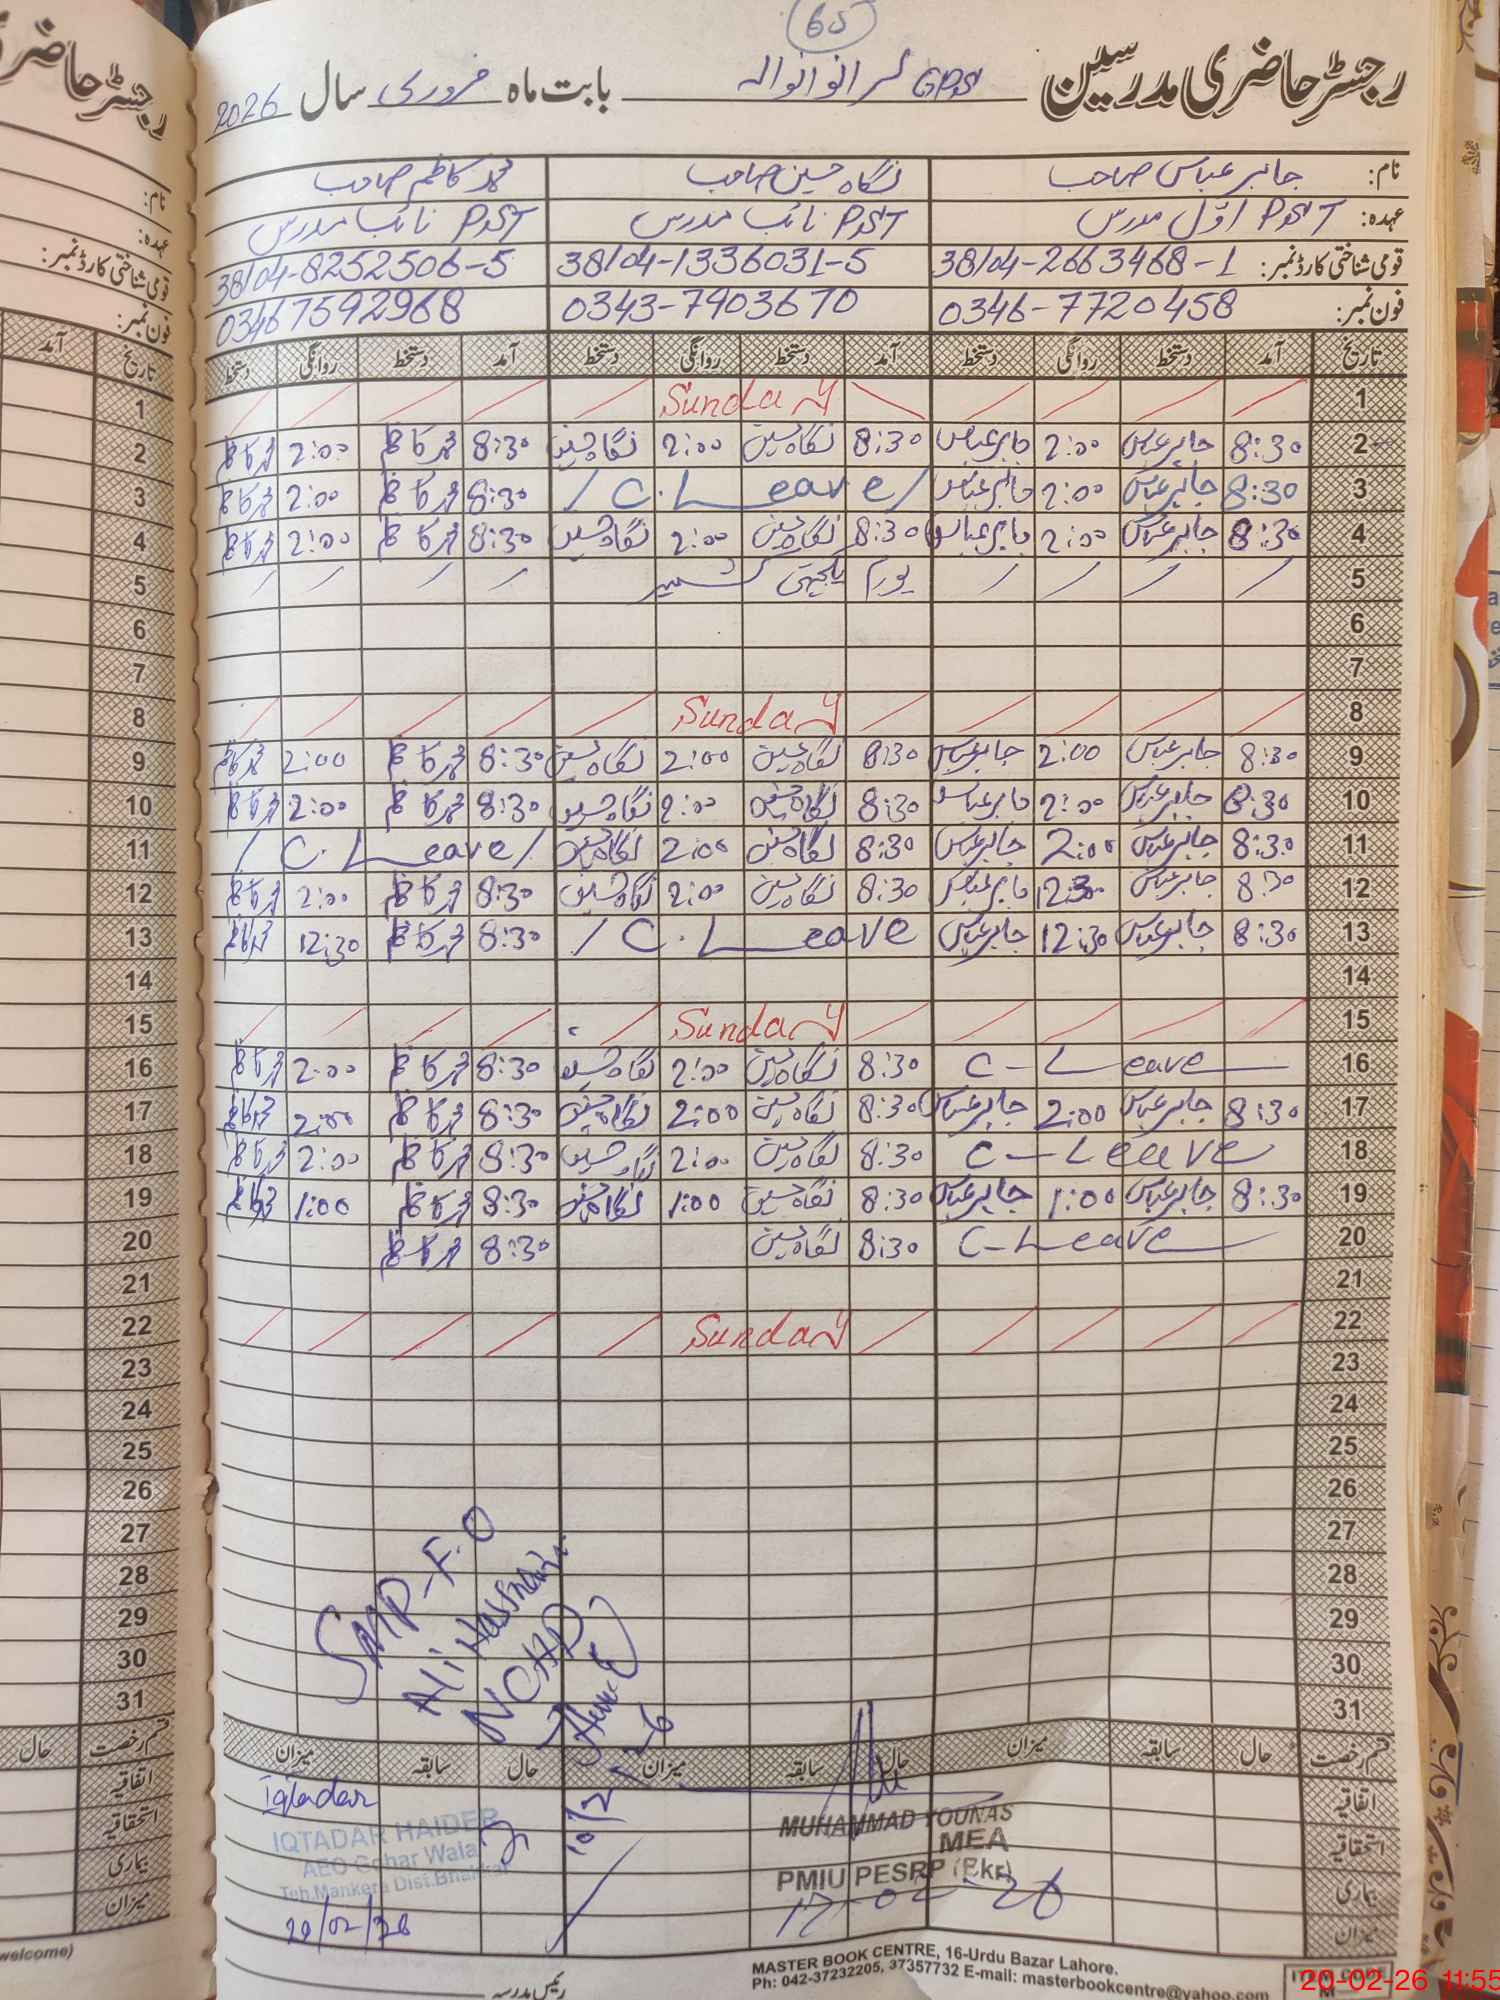 65
رجسٹر حاضری مدرسین GPS بابت ماہ فروری سال 2026
نام: جابر عباس صاحب نگاہ حسین صاحب محمد کاظم صاحب
عہدہ: PST اوّل مدرس PST نائب مدرس PST نائب مدرس
قومی شناختی کارڈ نمبر: 38104-2663468-1 38104-1336031-5 38104-8252506-5
فون نمبر: 0346-7720458 0343-7903670 03467592968
تاریخ آمد دستخط روانگی دستخط آمد دستخط روانگی دستخط آمد دستخط روانگی دستخط
1 Sunday 1
2 8:30 جابر عباس 2:00 جابر عباس 8:30 نگاہ حسین 2:00 نگاہ حسین 8:30 محمد کاظم 2:00 محمد کاظم 2
3 8:30 جابر عباس 2:00 جابر عباس / C. Leave / 8:30 محمد کاظم 2:00 محمد کاظم 3
4 8:30 جابر عباس 2:00 جابر عباس 8:30 نگاہ حسین 2:00 نگاہ حسین 8:30 محمد کاظم 2:00 محمد کاظم 4
5 یوم یکجہتی کشمیر 5
6 6
7 7
8 Sunday 8
9 8:30 جابر عباس 2:00 جابر عباس 8:30 نگاہ حسین 2:00 نگاہ حسین 8:30 محمد کاظم 2:00 محمد کاظم 9
10 8:30 جابر عباس 2:00 جابر عباس 8:30 نگاہ حسین 2:00 نگاہ حسین 8:30 محمد کاظم 2:00 محمد کاظم 10
11 8:30 جابر عباس 2:00 جابر عباس 8:30 نگاہ حسین 2:00 نگاہ حسین / C. Leave / 11
12 8:30 جابر عباس 12:30 جابر عباس 8:30 نگاہ حسین 2:00 نگاہ حسین 8:30 محمد کاظم 2:00 محمد کاظم 12
13 8:30 جابر عباس 12:30 جابر عباس / C. Leave 8:30 محمد کاظم 12:30 محمد کاظم 13
14 14
15 Sunday 15
16 C-Leave 8:30 نگاہ حسین 2:00 نگاہ حسین 8:30 محمد کاظم 2:00 محمد کاظم 16
17 8:30 جابر عباس 2:00 جابر عباس 8:30 نگاہ حسین 2:00 نگاہ حسین 8:30 محمد کاظم 2:00 محمد کاظم 17
18 C-Leave 8:30 نگاہ حسین 2:00 نگاہ حسین 8:30 محمد کاظم 2:00 محمد کاظم 18
19 8:30 جابر عباس 1:00 جابر عباس 8:30 نگاہ حسین 1:00 نگاہ حسین 8:30 محمد کاظم 1:00 محمد کاظم 19
20 C-Leave 8:30 نگاہ حسین 8:30 محمد کاظم 20
21 21
22 Sunday 22
23 23
24 24
25 25
26 26
27 27
28 28
29 29
30 30
31 31
SMP-F.O
Ali Hassnain
NCHD
10/2/26
قسم رخصت حال سابقہ میزان حال سابقہ میزان حال سابقہ میزان قسم رخصت
اتفاقیہ
استحقاقیہ
بیماری
میزان
Iqtadar
IQTADAR HAIDER
AEO Gohar Wala
Teh.Mankera Dist.Bhakkar
20/02/26
MUHAMMAD YOUNAS
MEA
PMIU PESRP (Bkr)
17-02-26
رئیس مدرسہ
MASTER BOOK CENTRE, 16-Urdu Bazar Lahore.
Ph: 042-37232205, 37357732 E-mail: masterbookcentre@yahoo.com
ITEM CODE
M
20-02-26 11:55
رجسٹر حاضری
نام:
عہدہ:
قومی شناختی کارڈ نمبر:
فون نمبر:
تاریخ آمد
حال
اتفاقیہ
استحقاقیہ
بیماری
میزان
welcome)